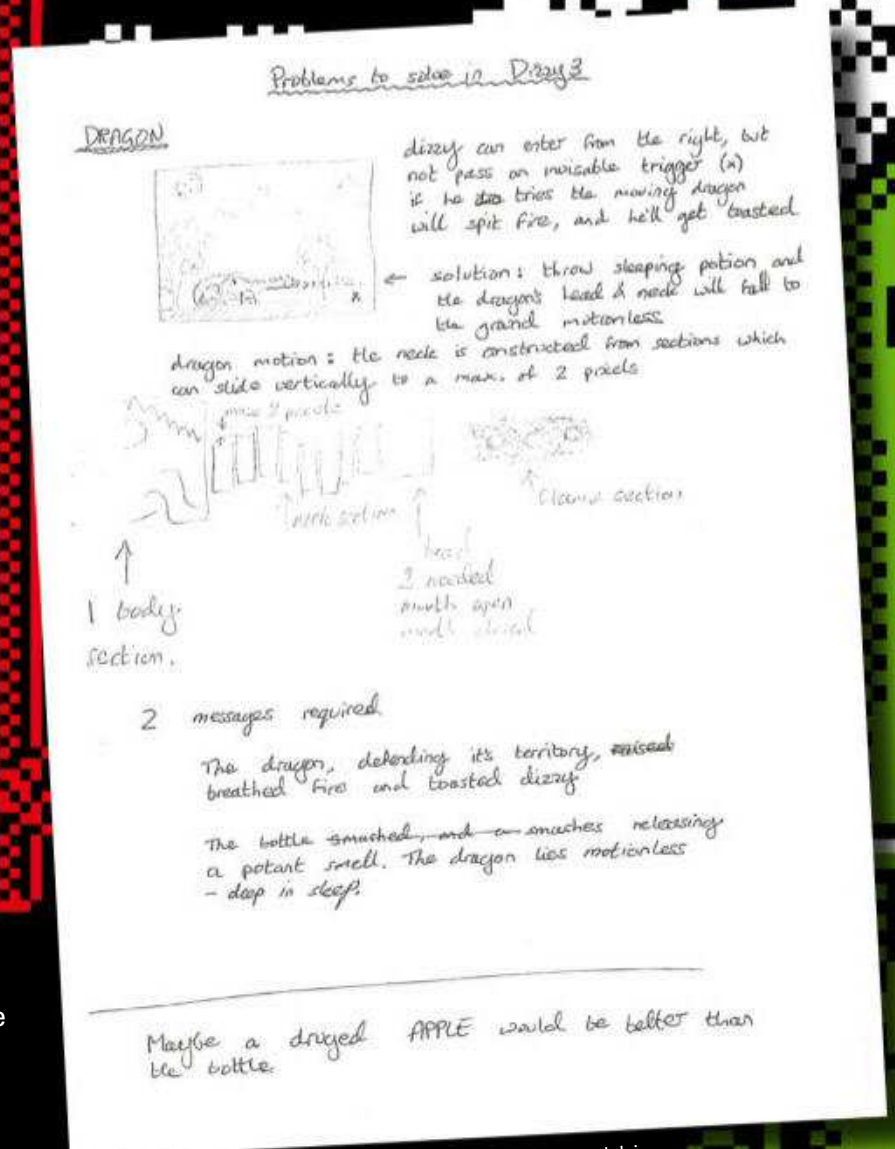 Problems to solve in Dizzy 3
DRAGON
dizzy can enter from the right, but
not pass an invisable trigger (x)
if he tries the moving dragon
will spit fire, and he'll get toasted
x
← solution: throw sleeping potion and
the dragon's head & neck will fall to
the ground motionless
dragon motion: the neck is constructed from sections which
can slide vertically to a max. of 2 pixels
max 2 pixels
neck section
flame section
head
2 needed
mouth open
mouth closed
1 body
section.
2 messages required
The dragon, defending it's territory, raised
breathed fire and toasted dizzy
The bottle smashed, and a smashes releasing
a potant smell. The dragon lies motionless
- deep in sleep.
Maybe a druged APPLE would be better than
the bottle.
e